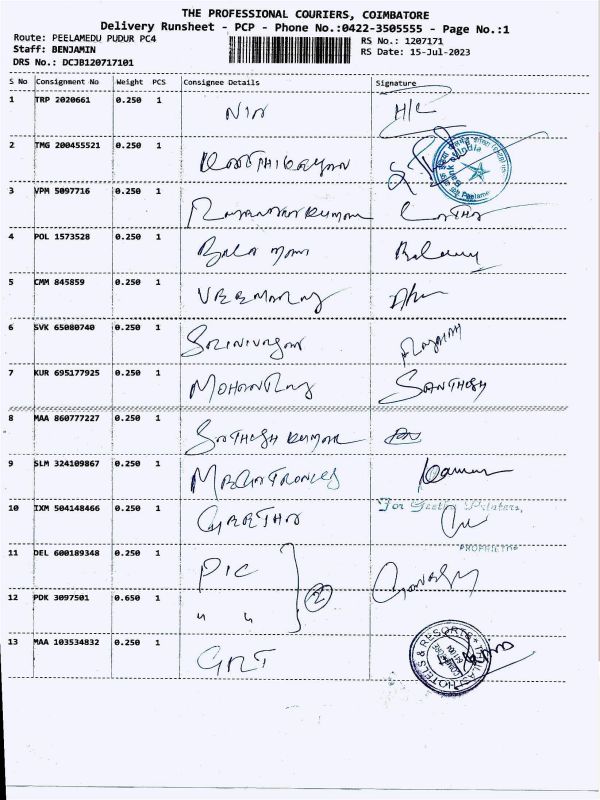 THE PROFESSIONAL COURIERS, COIMBATORE
Delivery Runsheet - PCP - Phone No.:0422-3505555 - Page No.:1
Route: PEELAMEDU PUDUR PC4
RS No.: 1207171
Staff: BENJAMIN
RS Date: 15-Jul-2023
DRS No.: DCJB120717101
S No Consignment No Weight PCS Consignee Details Signature
1 TRP 2020661 0.250 1 H/C
2 TMG 200455521 0.250 1
Bank of India
3 VPM 5097716 0.250 1
4 POL 1573528 0.250 1 Bala
5 CMM 845859 0.250 1 VEEMARAJ
6 SVK 65080740 0.250 1 SRINIVASAN
7 KUR 695177925 0.250 1 MOHANRAJ SANTHOSH
8 MAA 860777227 0.250 1 SATHESH KUMAR
9 SLM 324109867 0.250 1 MECHTRONICS
10 IXM 504148466 0.250 1 GEETHA For Geetha Printers,
PROPRIETOR
11 DEL 600189348 0.250 1 PIC
2
12 PDK 3097501 0.650 1 " "
13 MAA 103534832 0.250 1 GRT
HOTELS & RESORTS